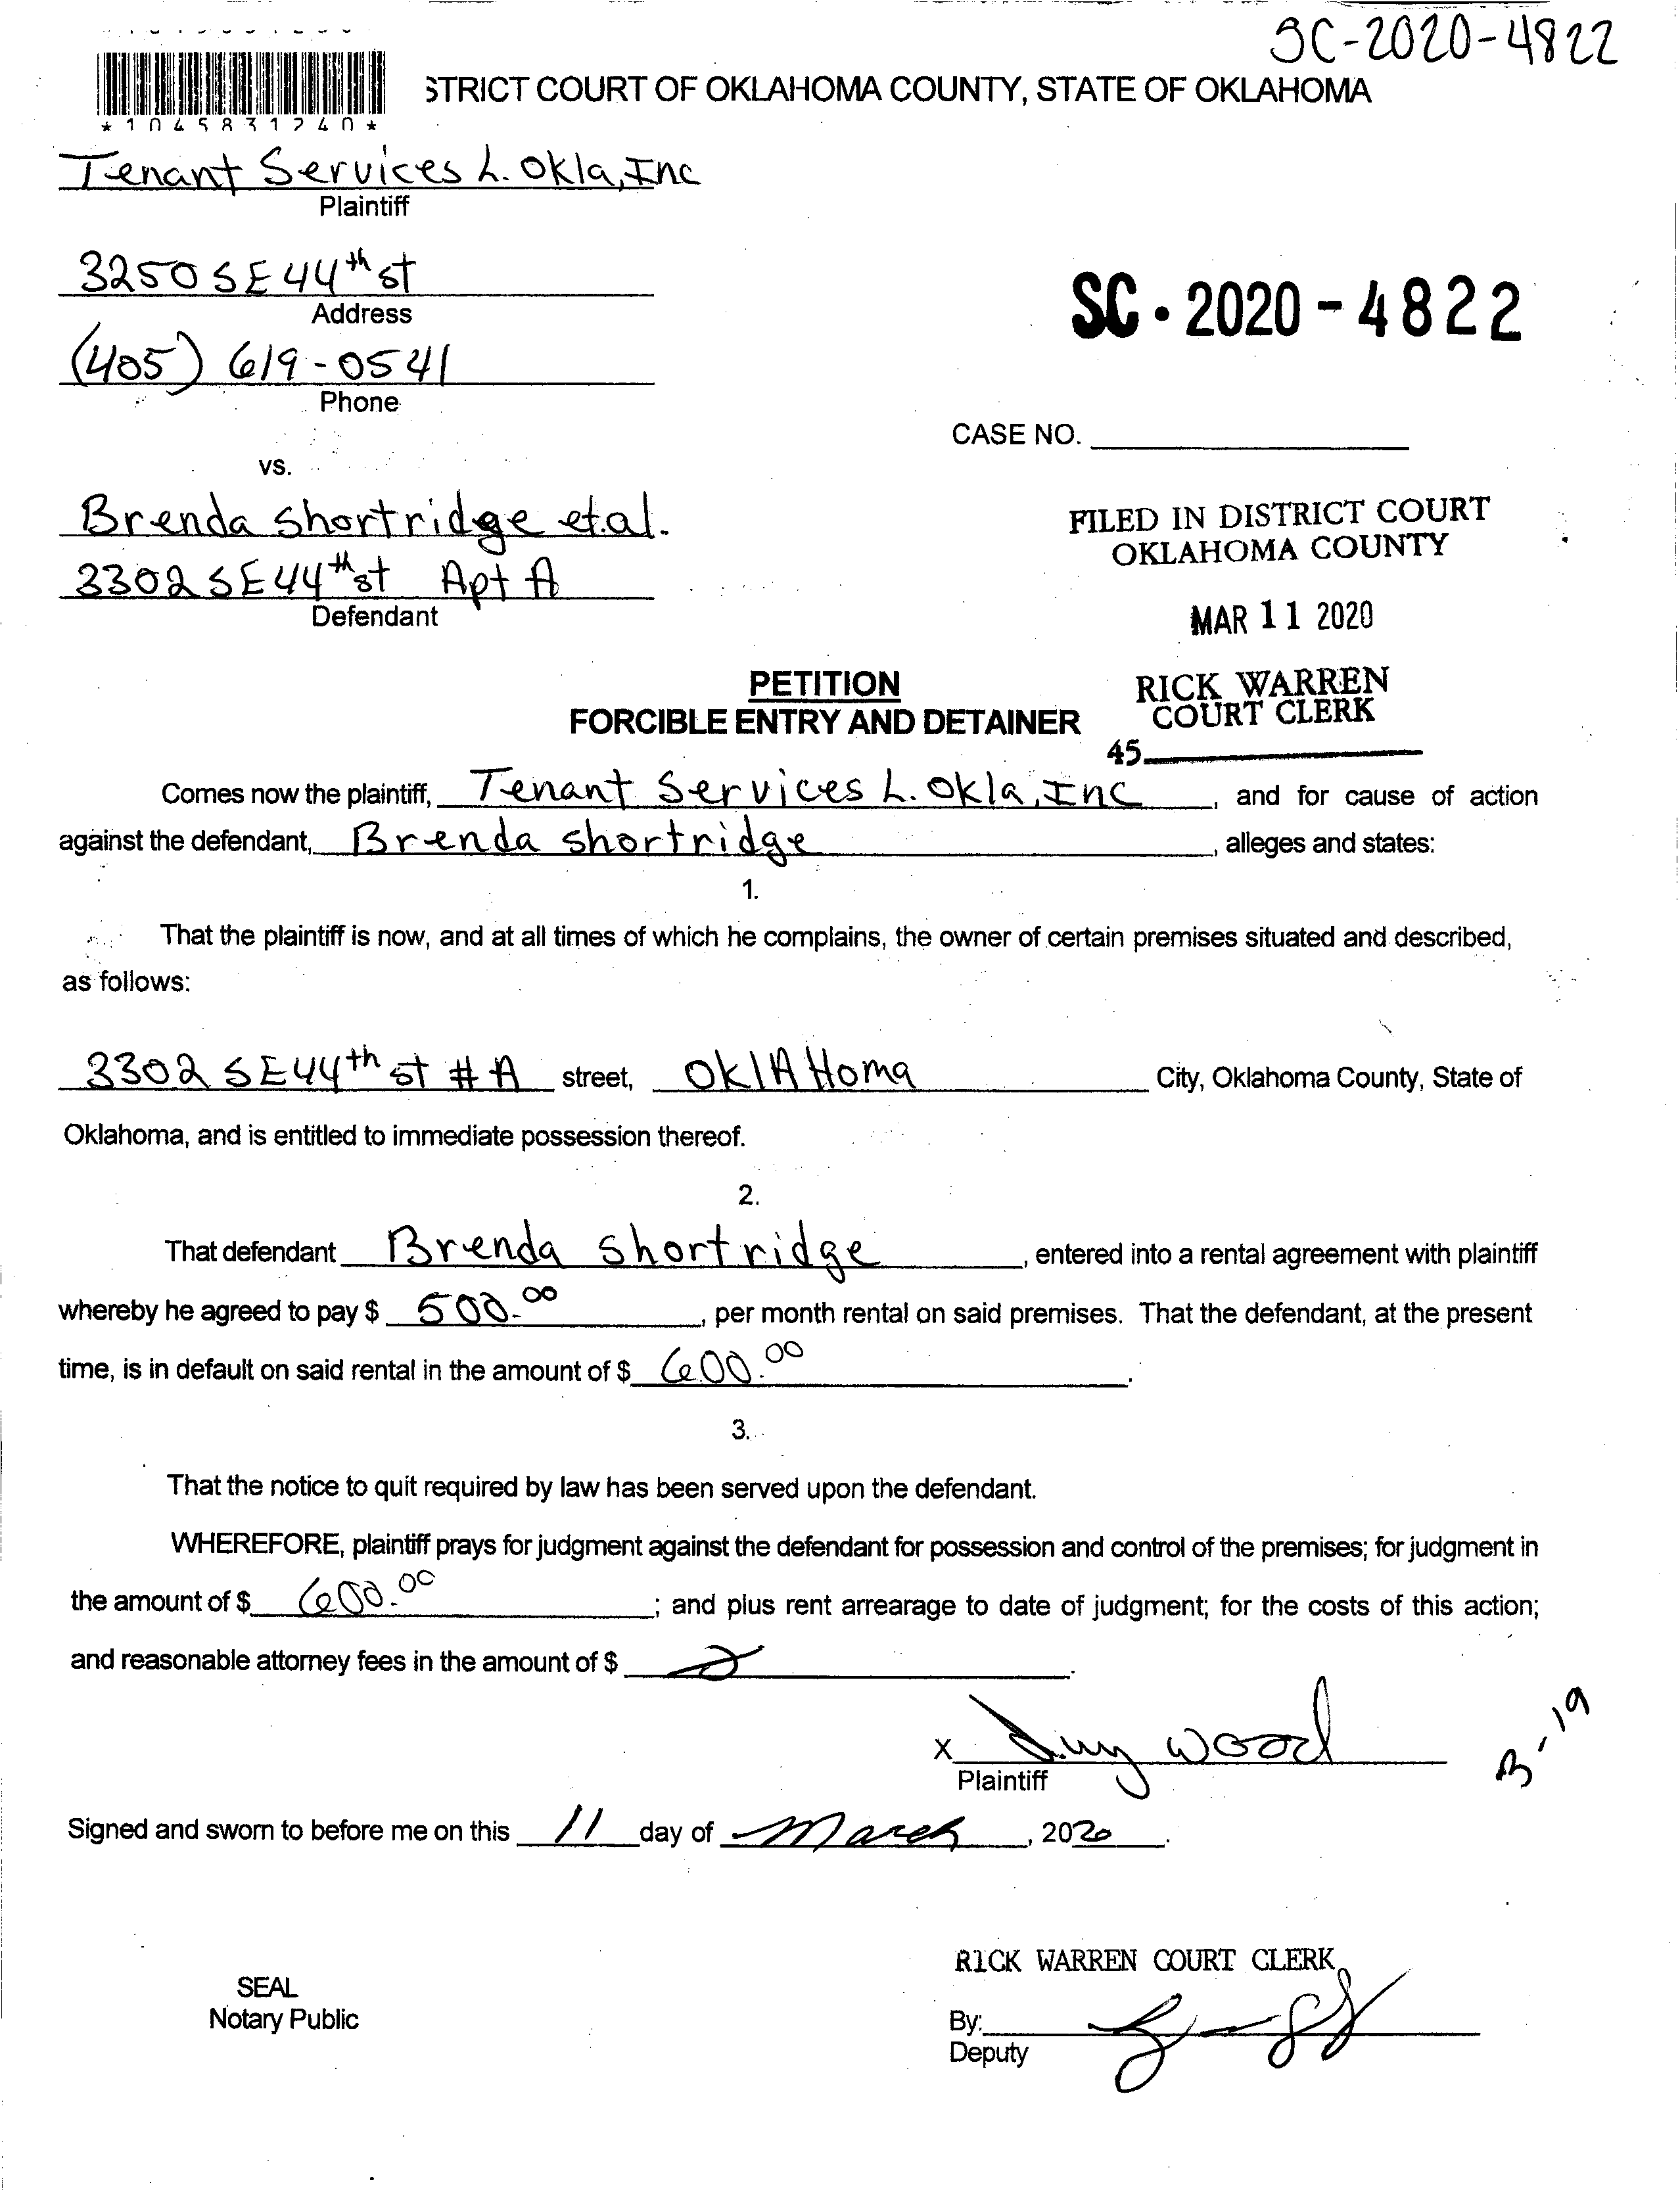 SC-2020-4822
STRICT COURT OF OKLAHOMA COUNTY, STATE OF OKLAHOMA
*1045831240*
Tenant Services L. Okla, Inc
Plaintiff
3250 SE 44th st
Address
(405) 619-0541
Phone
SC-2020-4822
CASE NO.
vs.
Brenda Shortridge et.al.
3302 SE 44th st Apt A
Defendant
FILED IN DISTRICT COURT
OKLAHOMA COUNTY
MAR 11 2020
RICK WARREN
COURT CLERK
45
PETITION
FORCIBLE ENTRY AND DETAINER
Comes now the plaintiff, Tenant Services L. Okla, Inc, and for cause of action
against the defendant, Brenda Shortridge, alleges and states:
1.
That the plaintiff is now, and at all times of which he complains, the owner of certain premises situated and described,
as follows:
3302 SE 44th st # A street, OklAHoma City, Oklahoma County, State of
Oklahoma, and is entitled to immediate possession thereof.
2.
That defendant Brenda Shortridge, entered into a rental agreement with plaintiff
whereby he agreed to pay $ 500.00, per month rental on said premises. That the defendant, at the present
time, is in default on said rental in the amount of $ 600.00.
3.
That the notice to quit required by law has been served upon the defendant.
WHEREFORE, plaintiff prays for judgment against the defendant for possession and control of the premises; for judgment in
the amount of $ 600.00; and plus rent arrearage to date of judgment; for the costs of this action;
and reasonable attorney fees in the amount of $
X Wood
Plaintiff
B-19
Signed and sworn to before me on this 11 day of March, 2020.
SEAL
Notary Public
RICK WARREN COURT CLERK
By:
Deputy